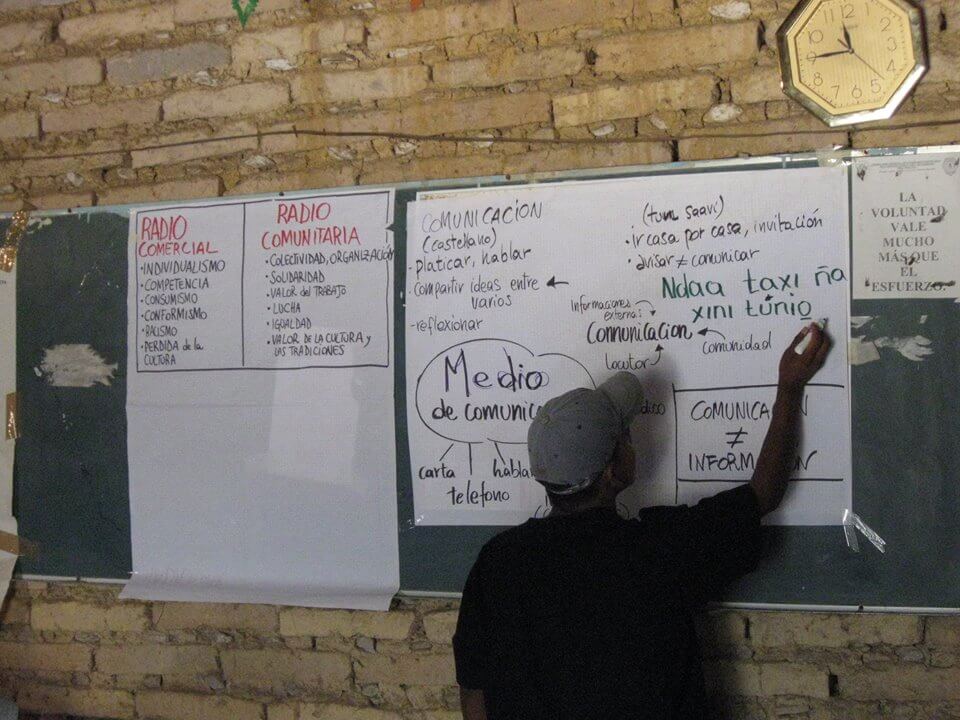 RADIO
COMERCIAL
• INDIVIDUALISMO
• COMPETENCIA
• CONSUMISMO
• CONFORMISMO
• RACISMO
• PERDIDA de la
CULTURA
RADIO
COMUNITARIA
• COLECTIVIDAD, ORGANIZACIÓN
• SOLIDARIDAD
• VALOR del TRABAJO
• LUCHA
• IGUALDAD
• VALOR DE LA CULTURA y
LAS TRADICIONES
COMUNICACION
(castellano)
• platicar, hablar
• compartir ideas entre
varios
• reflexionar
(tum saavi)
• ir casa por casa, invitación
• avisar ≠ comunicar
Ndaa taxi ña
xini túnio
Informaciones
externas
Comunicacion
comunidad
locutor
Medio
de comunic
carta
hablar
telefono
COMUNICACION
≠
INFORMACION
LA
VOLUNTAD
VALE
MUCHO
MÁS QUE
EL
ESFUERZO.
12
1
2
3
4
5
6
7
8
9
10
11